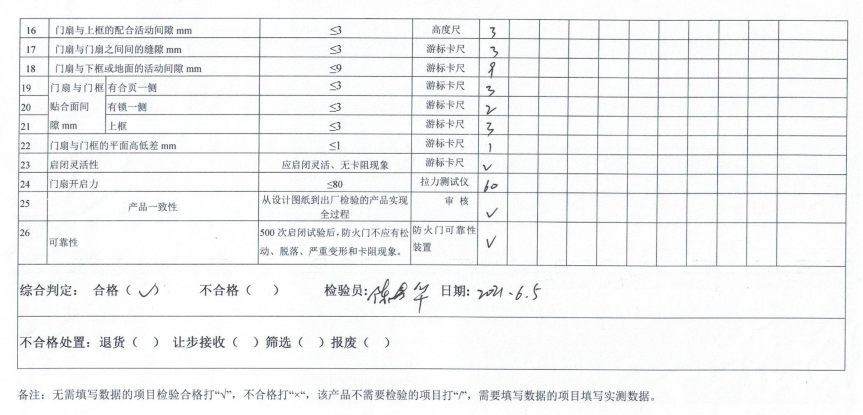 16 门扇与上框的配合活动间隙 mm ≤3 高度尺 3
17 门扇与门扇之间间的缝隙 mm ≤3 游标卡尺 3
18 门扇与下框或地面的活动间隙 mm ≤9 游标卡尺
19 门扇与门框 有合页一侧 ≤3 游标卡尺 3
20 贴合面间 有锁一侧 ≤3 游标卡尺 2
21 隙 mm 上框 ≤3 游标卡尺 3
22 门扇与门框的平面高低差 mm ≤1 游标卡尺 1
23 启闭灵活性 应启闭灵活、无卡阻现象 游标卡尺 √
24 门扇开启力 ≤80 拉力测试仪 60
25 产品一致性 从设计图纸到出厂检验的产品实现 审 核
全过程 √
26 可靠性 500 次启闭试验后，防火门不应有松 防火门可靠性
动、脱落、严重变形和卡阻现象。 装置 √
综合判定： 合格（ √ ） 不合格（ ） 检验员: 日期: 2021.6.5
不合格处置：退货（ ） 让步接收（ ）筛选（ ）报废（ ）
备注：无需填写数据的项目检验合格打“√”，不合格打“×“，该产品不需要检验的项目打“/”，需要填写数据的项目填写实测数据。